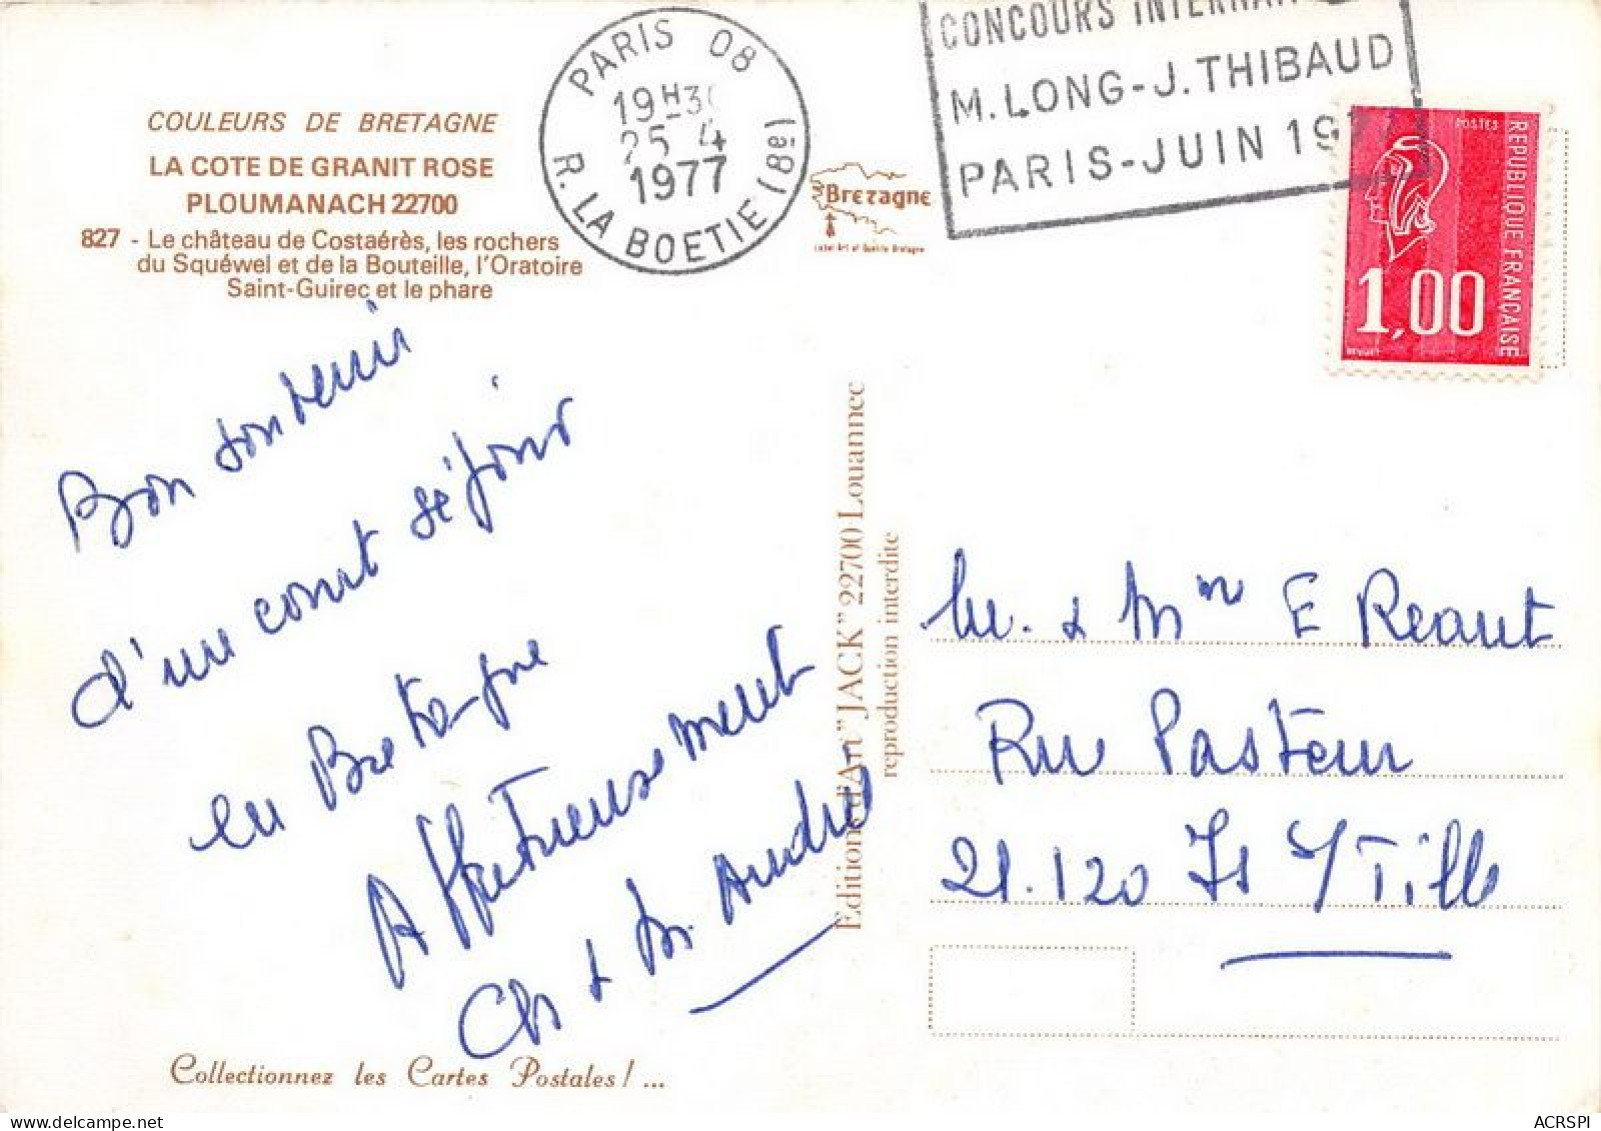 COULEURS DE BRETAGNE
LA COTE DE GRANIT ROSE
PLOUMANACH 22700
827 - Le château de Costaérès, les rochers
du Squéwel et de la Bouteille, l'Oratoire
Saint-Guirec et le phare
PARIS 08
19H30
25-4
1977
R. LA BOETIE (8è)
Bretagne
CONCOURS INTERNA
M. LONG-J. THIBAUD
PARIS-JUIN 1977
POSTES
REPUBLIQUE FRANÇAISE
1,00
Bon souvenir
d'un court séjour
en Bretagne
Affectueusement
Ch & M. André
Editions d'Art "JACK" 22700 Louannec
reproduction interdite
M. & Mme E Reaut
Rue Pasteur
21.120 Is s/Tille
Collectionnez les Cartes Postales ! ...
ACRSPI